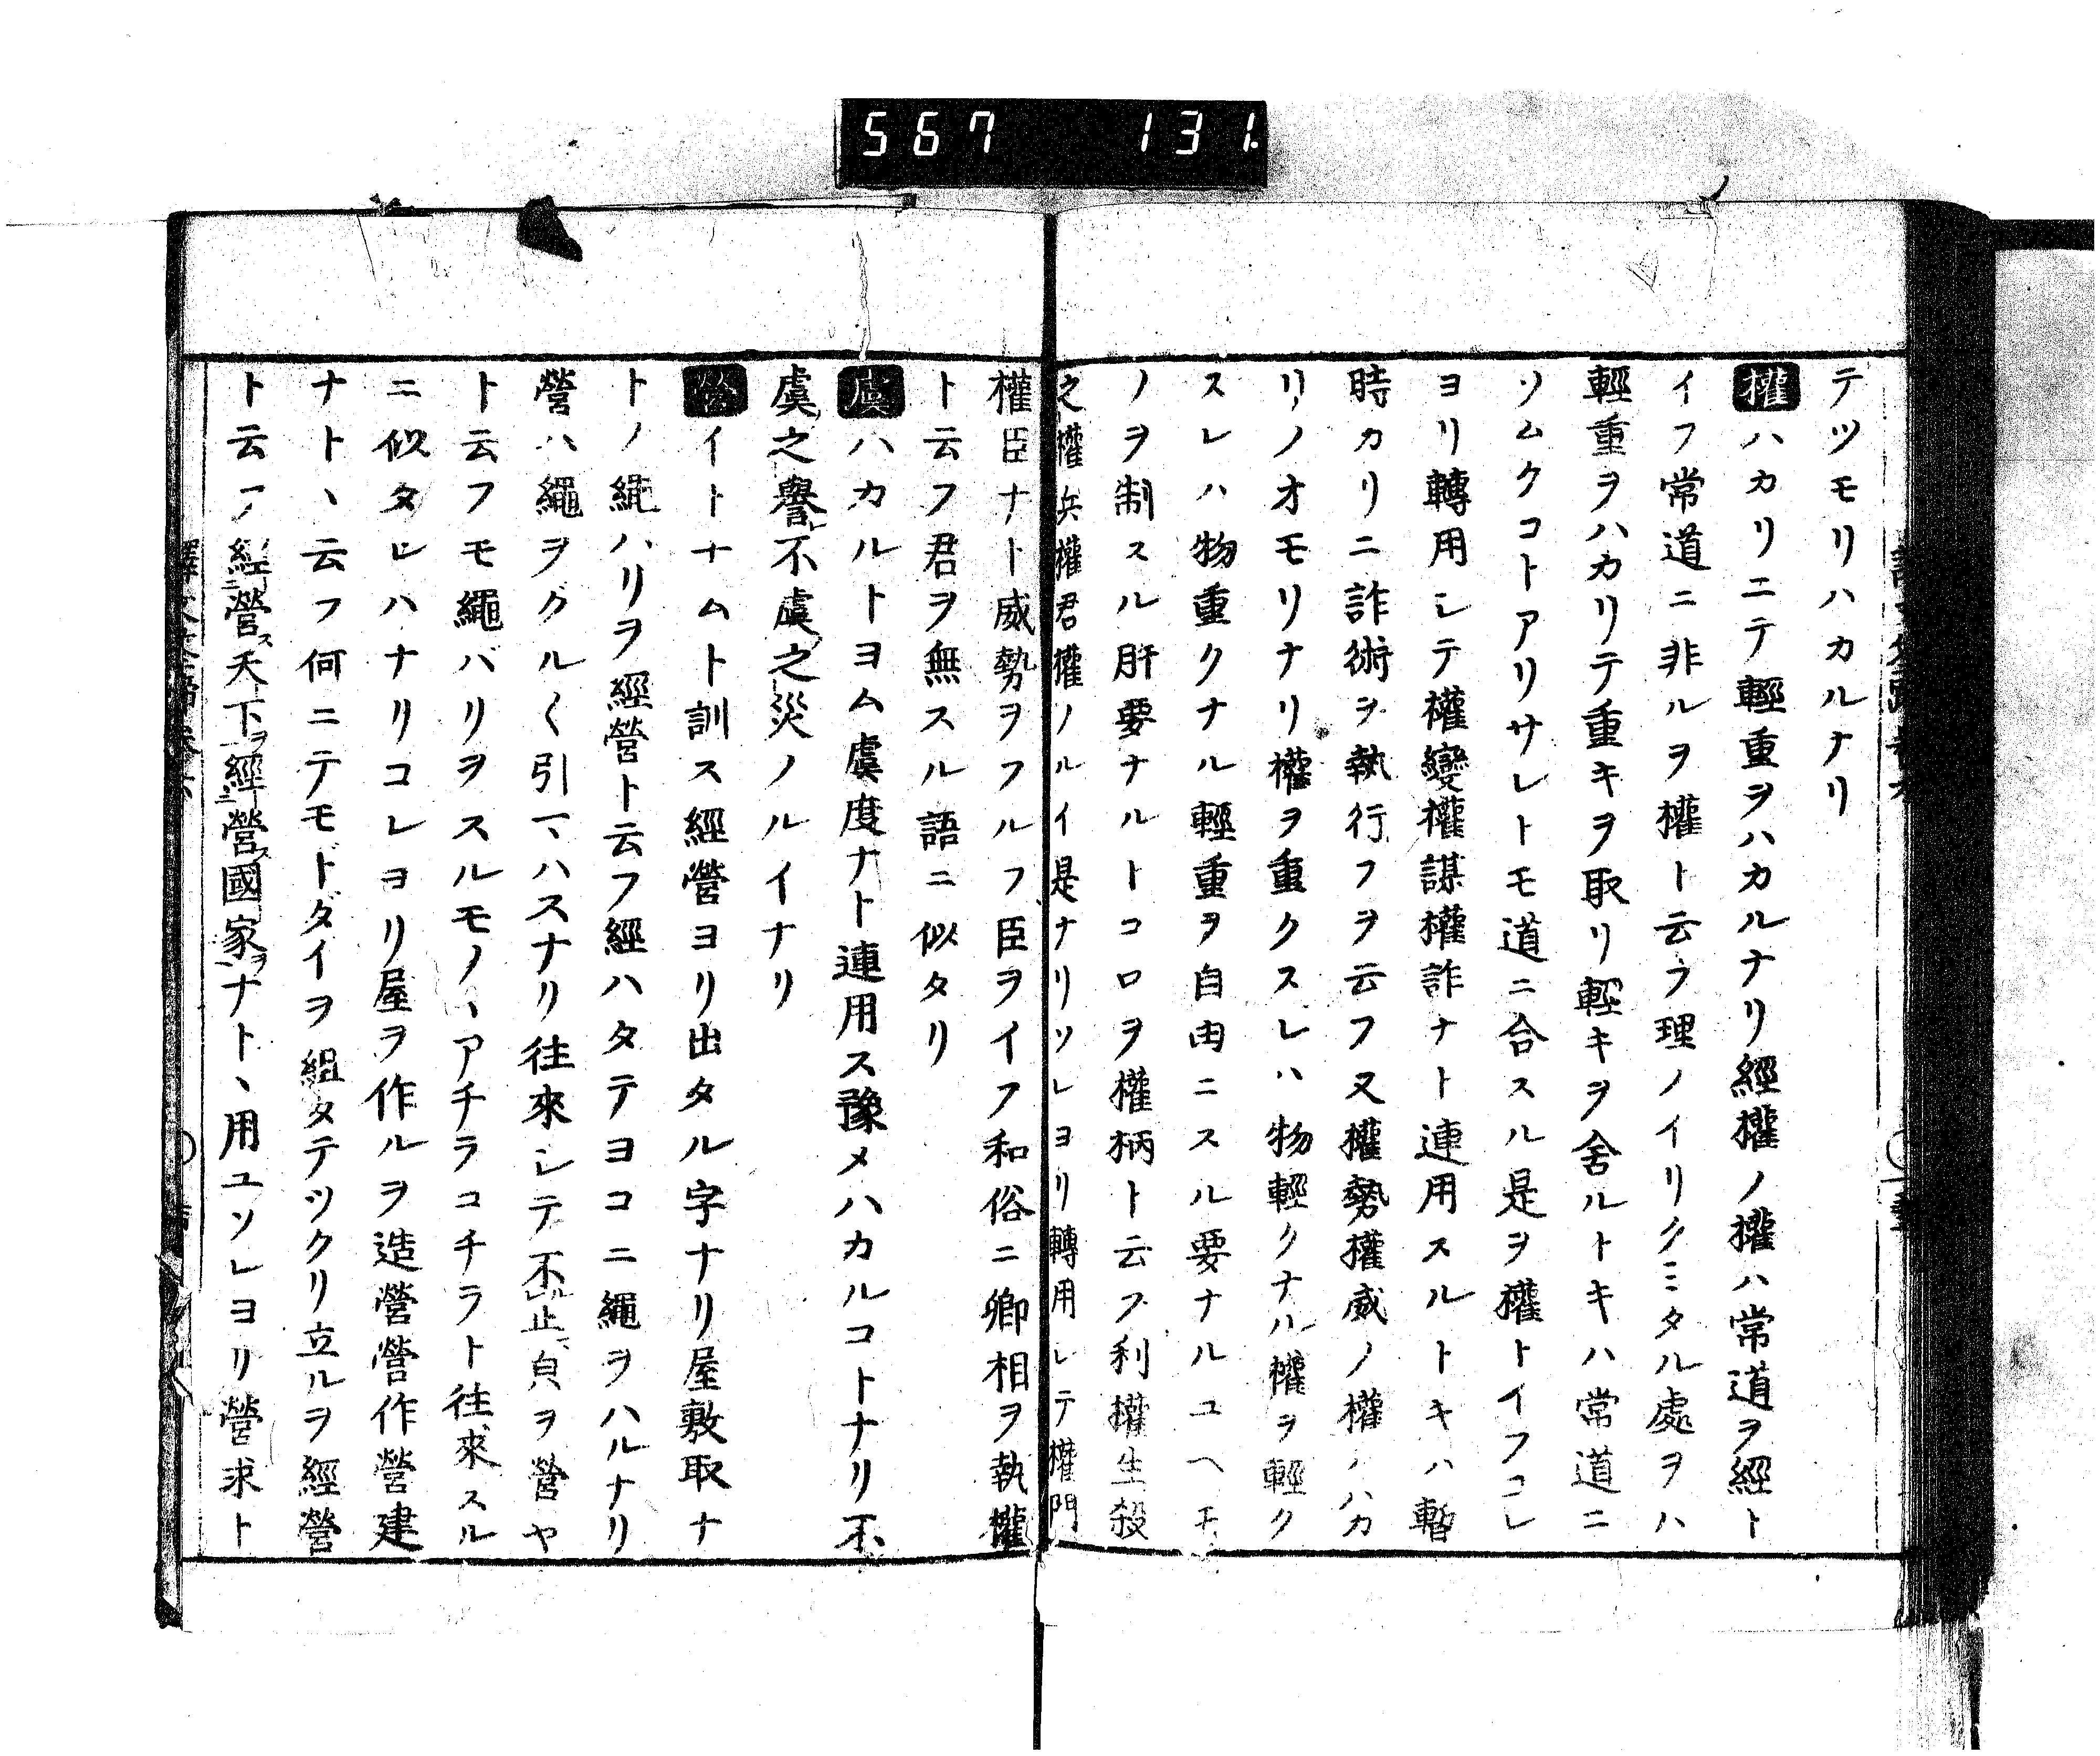 567 131.
テツモリハカルナリ
權ハカリニテ輕重ヲハカルナリ經權ノ權ハ常道ヲ經ト
イフ常道ニ非ルヲ權ト云フ理ノイリクミタル處ヲハ
輕重ヲハカリテ重キヲ取リ輕キヲ舍ルトキハ常道ニ
ソムクコトアリサレトモ道ニ合スル是ヲ權トイフコレ
ヨリ轉用シテ權變權謀權詐ナト連用スルトキハ暫
時カリニ詐術ヲ執行フヲ云フ又權勢權威ノ權ハカ
リノオモリナリ權ヲ重クスレハ物輕クナル權ヲ輕ク
スレハ物重クナル輕重ヲ自由ニスル要ナルユヘモ
ノヲ制スル肝要ナルトコロヲ權柄ト云フ利權生殺
之權兵權君權ノルイ是ナリソレヨリ轉用シテ權門
權臣ナト威勢ヲフルフ臣ヲイフ和俗ニ卿相ヲ執權
ト云フ君ヲ無スル語ニ似タリ
虞ハカルトヨム虞度ナト連用ス豫メハカルコトナリ不
虞之譽不虞之災ノルイナリ
營イトナムト訓ス經營ヨリ出タル字ナリ屋敷取ナ
トノ繩ハリヲ經營ト云フ經ハタテヨコニ繩ヲハルナリ
營ハ繩ヲクル〱引マハスナリ往來シテ不止皃ヲ營ヤ
ト云フモ繩バリヲスルモノヽアチラコチラト往來スル
ニ似タレハナリコレヨリ屋ヲ作ルヲ造營營作營建
ナトヽ云フ何ニテモドダイヲ組タテツクリ立ルヲ經營
ト云フ經營ス天下ヲ經營ス國家ヲナトヽ用ユソレヨリ營求ト